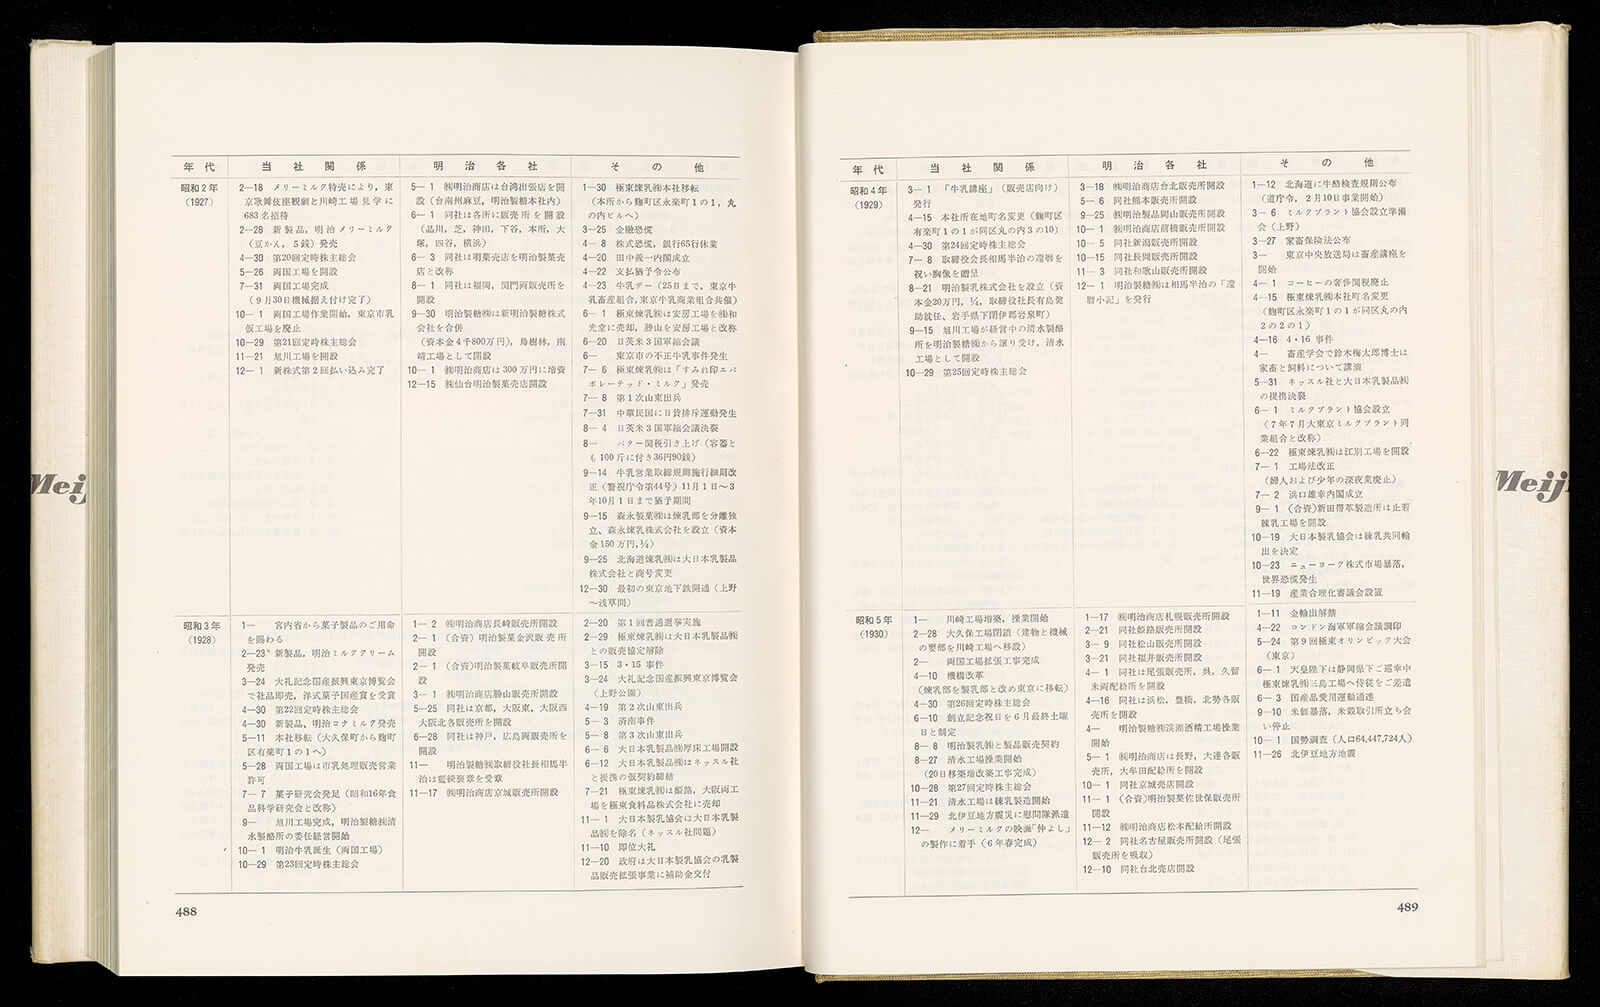 Meij
年代 当社関係 明治各社 その他
昭和2年
(1927)
2—18 メリーミルク特売により，東
京歌舞伎座観劇と川崎工場見学に
683名招待
2—28 新製品，明治メリーミルク
（豆かん，5銭）発売
4—30 第20回定時株主総会
5—26 両国工場を開設
7—31 両国工場完成
（9月30日機械据え付け完了）
10—1 両国工場作業開始，東京市乳
仮工場を廃止
10—29 第21回定時株主総会
11—21 旭川工場を開設
12—1 新株式第2回払い込み完了
5—1 ㈱明治商店は台湾出張店を開
設（台南州麻豆，明治製糖本社内）
6—1 同社は各所に販売所を開設
（品川，芝，神田，下谷，本所，大
塚，四谷，横浜）
6—3 同社は明菓売店を明治製菓売
店と改称
8—1 同社は福岡，関門両販売所を
開設
9—30 明治製糖㈱は新明治製糖株式
会社を合併
（資本金4千800万円），烏樹林，南
靖工場として開設
10—1 ㈱明治商店は300万円に増資
12—15 ㈱仙台明治製菓売店開設
1—30 極東煉乳㈱本社移転
（本所から麴町区永楽町1の1，丸
の内ビルへ）
3—25 金融恐慌
4—8 株式恐慌，銀行65行休業
4—20 田中義一内閣成立
4—22 支払猶予令公布
4—23 牛乳デー（25日まで，東京牛
乳畜産組合，東京牛乳商業組合共催）
6—1 極東煉乳㈱は安房工場を㈱和
光堂に売却，勝山を安房工場と改称
6—20 日英米3国軍縮会議
6— 東京市の不正牛乳事件発生
7—6 極東煉乳㈱は「すみれ印エバ
ポレーテッド・ミルク」発売
7—8 第1次山東出兵
7—31 中華民国に日貨排斥運動発生
8—4 日英米3国軍縮会議決裂
8— バター関税引き上げ（容器と
も100斤に付き36円90銭）
9—14 牛乳営業取締規則施行細則改
正（警視庁令第44号）11月1日〜3
年10月1日まで猶予期間
9—15 森永製菓㈱は煉乳部を分離独
立，森永煉乳株式会社を設立（資本
金150万円，¼）
9—25 北海道煉乳㈱は大日本乳製品
株式会社と商号変更
12—30 最初の東京地下鉄開通（上野
〜浅草間）
昭和3年
(1928)
1— 宮内省から菓子製品のご用命
を賜わる
2—23 新製品，明治ミルククリーム
発売
3—24 大礼記念国産振興東京博覧会
で社品即売，洋式菓子国産賞を受賞
4—30 第22回定時株主総会
4—30 新製品，明治コナミルク発売
5—11 本社移転（大久保町から麴町
区有楽町1の1へ）
5—28 両国工場は市乳処理販売営業
許可
7—7 菓子研究会発足（昭和16年食
品科学研究会と改称）
9— 旭川工場完成，明治製糖㈱清
水製酪所の委任経営開始
10—1 明治牛乳誕生（両国工場）
10—29 第23回定時株主総会
1—2 ㈱明治商店長崎販売所開設
2—1 （合資）明治製菓金沢販売所
開設
2—1 （合資）明治製菓岐阜販売所開
設
3—1 ㈱明治商店勝山販売所開設
5—25 同社は京都，大阪東，大阪西
大阪北各販売所を開設
6—28 同社は神戸，広島両販売所を
開設
11— 明治製糖㈱取締役社長相馬半
治は藍綬褒章を受章
11—17 ㈱明治商店京城販売所開設
2—20 第1回普通選挙実施
2—29 極東煉乳㈱は大日本乳製品㈱
との販売協定解除
3—15 3・15事件
3—24 大礼記念国産振興東京博覧会
（上野公園）
4—19 第2次山東出兵
5—3 済南事件
5—8 第3次山東出兵
6—6 大日本乳製品㈱厚床工場開設
6—12 大日本乳製品㈱はネッスル社
と提携の仮契約締結
7—21 極東煉乳㈱は姫路，大阪両工
場を極東食料品株式会社に売却
11—1 大日本製乳協会は大日本乳製
品㈱を除名（ネッスル社問題）
11—10 即位大礼
12—20 政府は大日本製乳協会の乳製
品販売拡張事業に補助金交付
488
年代 当社関係 明治各社 その他
昭和4年
(1929)
3—1 「牛乳講座」（販売店向け）
発行
4—15 本社所在地町名変更（麴町区
有楽町1の1が同区丸の内3の10）
4—30 第24回定時株主総会
7—8 取締役会長相馬半治の還暦を
祝い胸像を贈呈
8—21 明治製乳株式会社を設立（資
本金20万円，¼，取締役社長有島健
助就任，岩手県下閉伊郡岩泉町）
9—15 旭川工場が経営中の清水製酪
所を明治製糖㈱から譲り受け，清水
工場として開設
10—29 第25回定時株主総会
3—18 ㈱明治商店台北販売所開設
5—6 同社熊本販売所開設
9—25 ㈱明治製品岡山販売所開設
10—1 ㈱明治商店前橋販売所開設
10—5 同社新潟販売所開設
10—15 同社長岡販売所開設
11—3 同社和歌山販売所開設
12—1 明治製糖㈱は相馬半治の「還
暦小記」を発行
1—12 北海道に牛酪検査規則公布
（道庁令，2月10日事業開始）
3—6 ミルクプラント協会設立準備
会（上野）
3—27 家畜保険法公布
3— 東京中央放送局は畜産講座を
開始
4—1 コーヒーの奢侈関税廃止
4—15 極東煉乳㈱本社町名変更
（麴町区永楽町1の1が同区丸の内
2の2の1）
4—16 4・16事件
4— 畜産学会で鈴木梅太郎博士は
家畜と飼料について講演
5—31 ネッスル社と大日本乳製品㈱
の提携決裂
6—1 ミルクプラント協会設立
（7年7月大東京ミルクプラント同
業組合と改称）
6—22 極東煉乳㈱は江別工場を開設
7—1 工場法改正
（婦人および少年の深夜業廃止）
7—2 浜口雄幸内閣成立
9—1 （合資）新田帯革製造所は止若
練乳工場を開設
10—19 大日本製乳協会は練乳共同輸
出を決定
10—23 ニューヨーク株式市場暴落，
世界恐慌発生
11—19 産業合理化審議会設置
昭和5年
(1930)
1— 川崎工場増築，操業開始
2—28 大久保工場閉鎖（建物と機械
の要部を川崎工場へ移設）
2— 両国工場拡張工事完成
4—10 機構改革
（煉乳部を製乳部と改め東京に移転）
4—30 第26回定時株主総会
6—10 創立記念祝日を6月最終土曜
日と制定
8—8 明治製乳㈱と製品販売契約
8—27 清水工場操業開始
（20日移築増改築工事完成）
10—28 第27回定時株主総会
11—21 清水工場は練乳製造開始
11—29 北伊豆地方震災に慰問隊派遣
12— メリーミルクの映画「仲よし」
の製作に着手（6年春完成）
1—17 ㈱明治商店札幌販売所開設
2—21 同社姫路販売所開設
3—9 同社松山販売所開設
3—21 同社福井販売所開設
4—1 同社は尾張販売所，呉，久留
米両配給所を開設
4—16 同社は浜松，豊橋，北勢各販
売所を開設
4— 明治製糖㈱渓湖酒精工場操業
開始
5—1 ㈱明治商店は長野，大連各販
売所，大牟田配給所を開設
10—1 同社京城売店開設
11—1 （合資）明治製菓佐世保販売所
開設
11—12 ㈱明治商店松本配給所開設
12—2 同社名古屋販売所開設（尾張
販売所を吸収）
12—10 同社台北売店開設
1—11 金輸出解禁
4—22 ロンドン海軍軍縮会議調印
5—24 第9回極東オリンピック大会
（東京）
6—1 天皇陛下は静岡県下ご巡幸中
極東煉乳㈱三島工場へ侍従をご差遣
6—3 国産品愛用運動通達
9—10 米価暴落，米穀取引所立ち会
い停止
10—1 国勢調査（人口64,447,724人）
11—26 北伊豆地方地震
489
Meiji